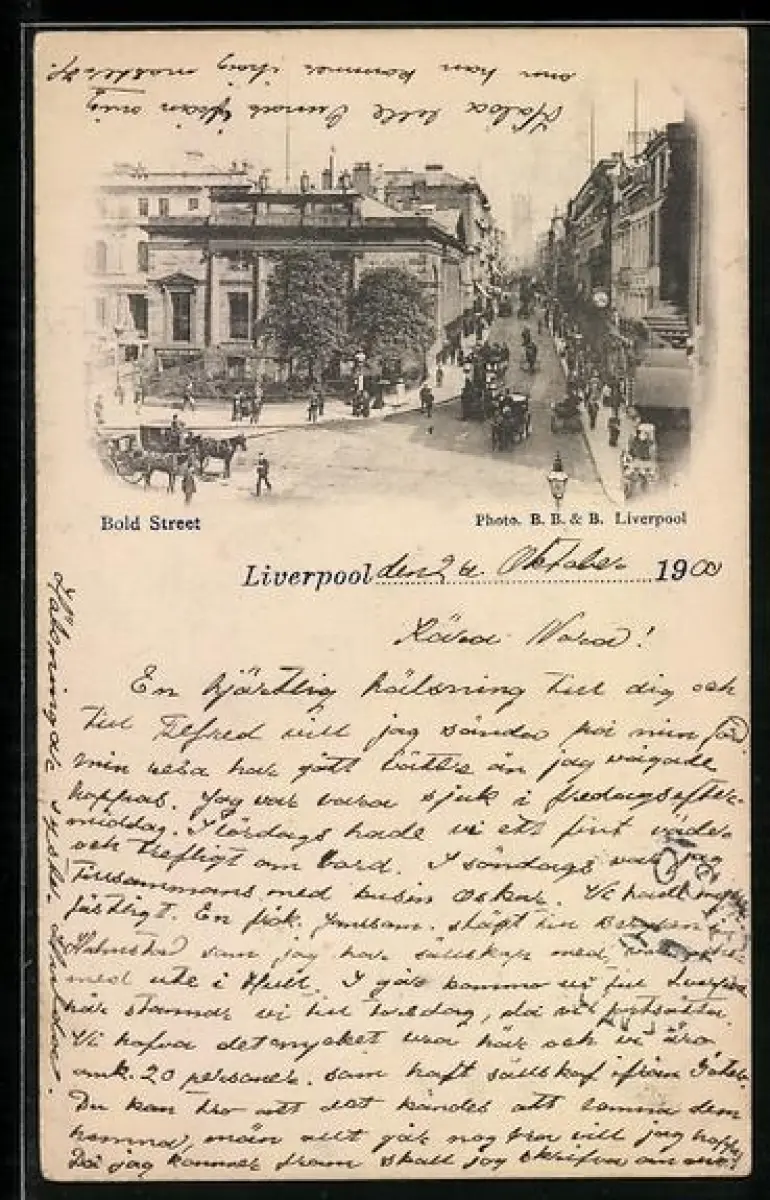 om han kommer ihåg
Helsa lille Gunnar från mig
Bold Street
Photo. B. B. & B. Liverpool
Liverpool den 2 Oktober 1900
Kära Nora!
En hjärtlig hälsning till dig och
till Elfred vill jag sända på min färd
min resa har gått bättre än jag vågade
hoppas. Jag var bara sjuk i fredagsefter-
middag. I lördags hade vi ett fint väder
och trefligt om bord. I söndags var jag
tillsammans med kusin Oskar. Vi hade
En frk. Jonsson. släkt till
Halmstad som jag har sällskap med, var
med ute i Hull. I går kommo vi till Liverpool
här stannar vi till torsdag, då vi fortsätta.
Vi hafva det mycket bra här och vi äro
omk. 20 personer. som haft sällskap ifrån Göteb.
Du kan tro att det kändes att lämna dem
hemma, män allt går nog bra vill jag hoppas
Då jag kommer fram skall jag skrifva om